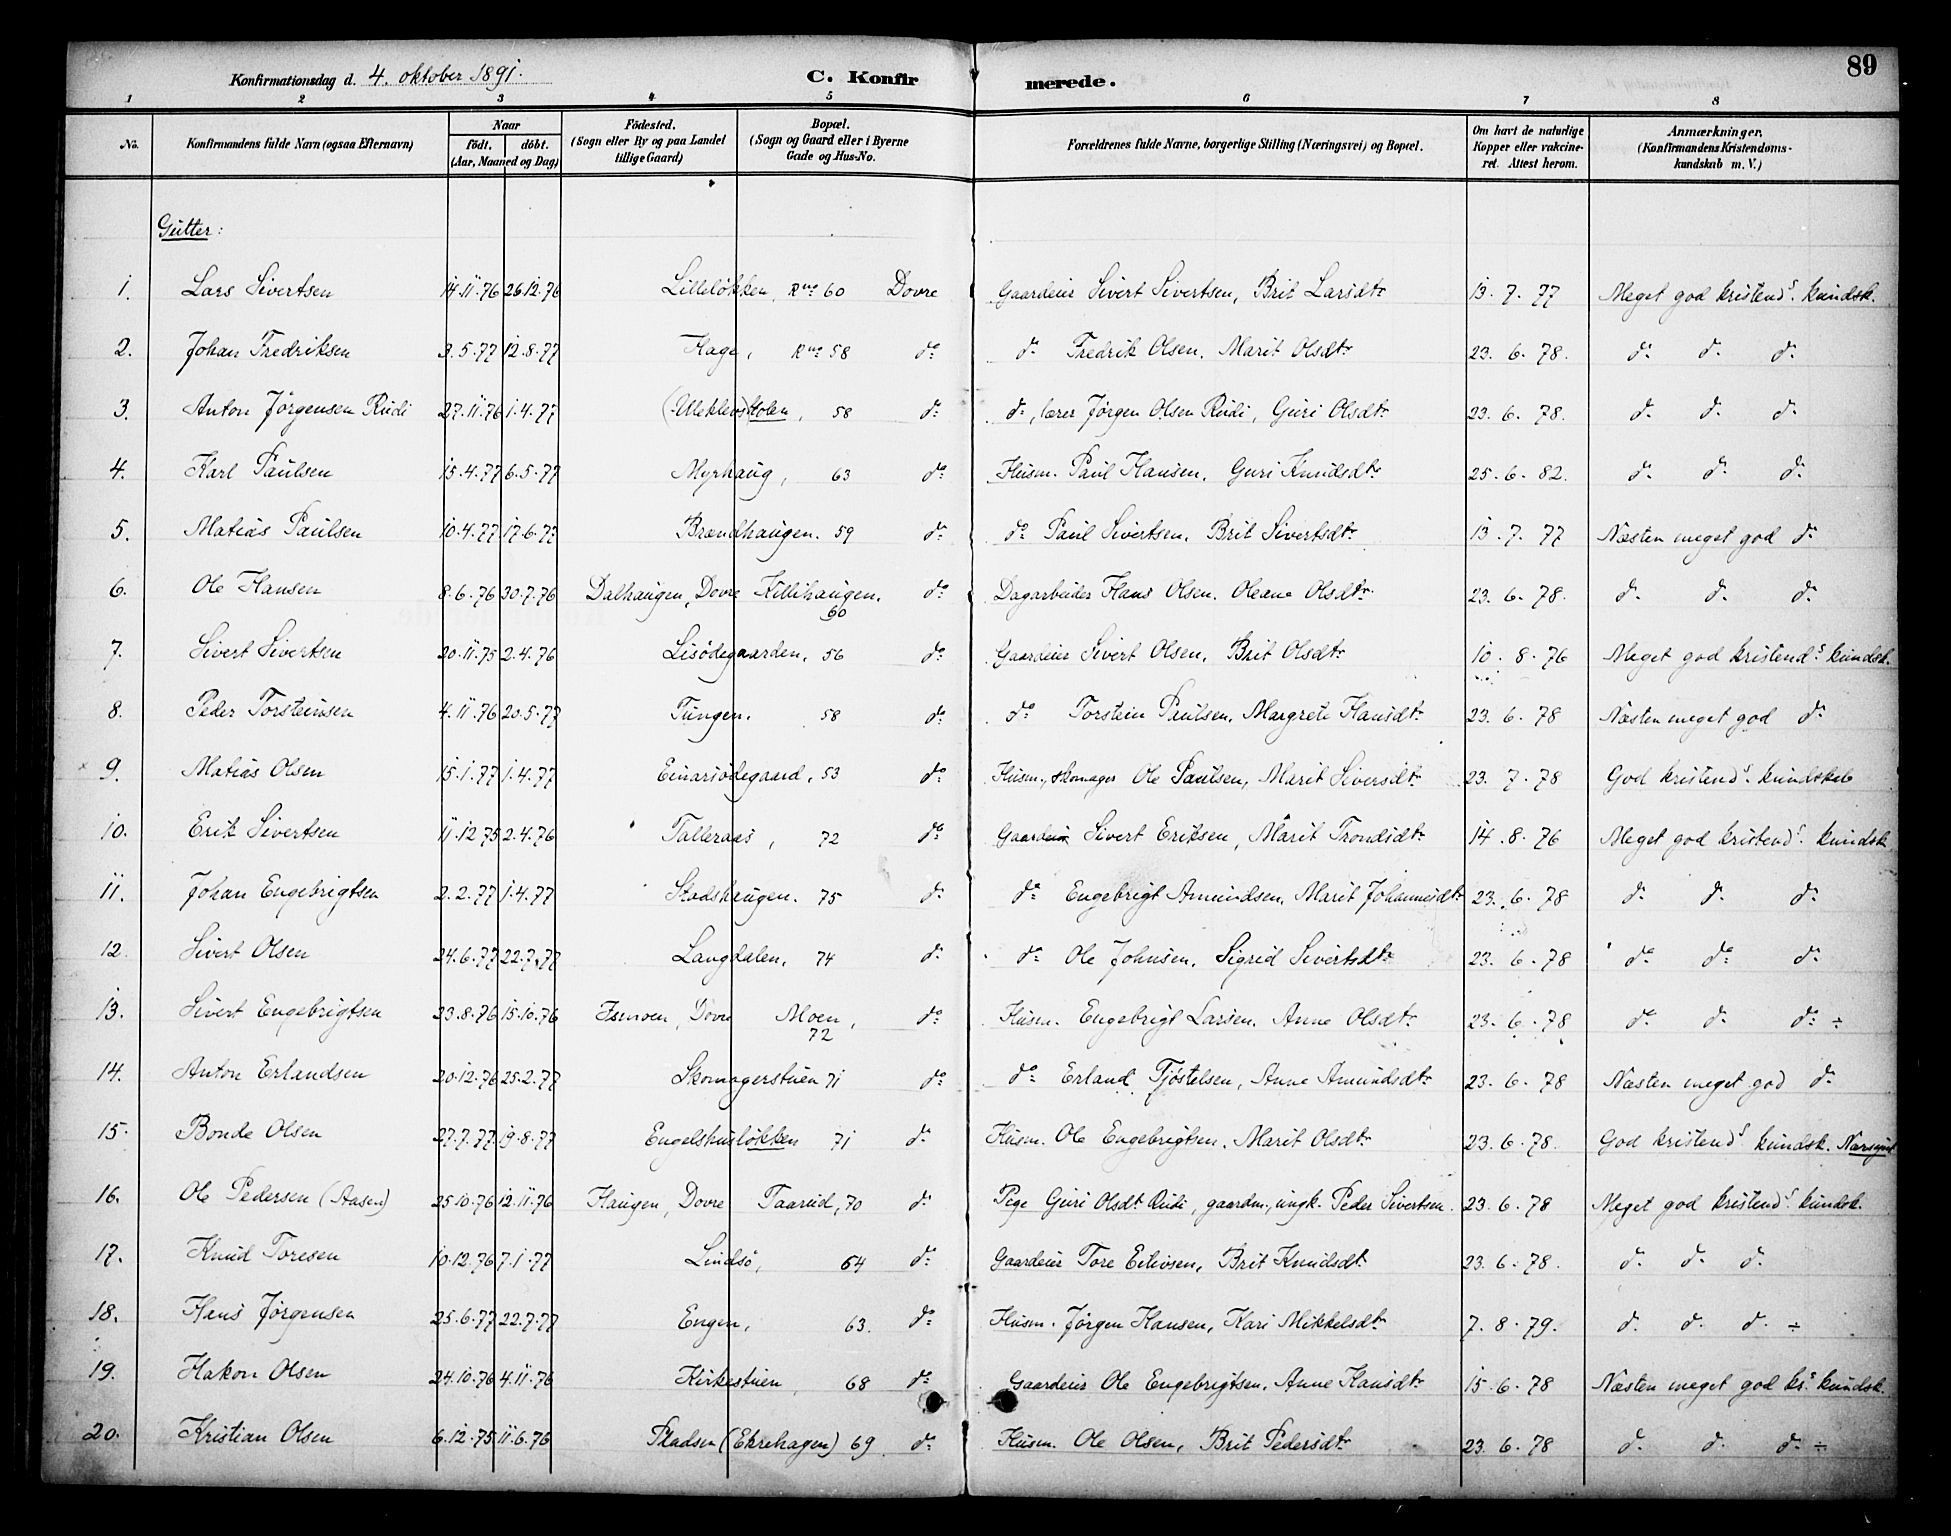 89
Konfirmationsdag d. 4. oktober 1891. C. Konfirmerede.
1 2 3 4 5 6 7 8
No. Konfirmandens fulde Navn (ogsaa Efternavn) Naar födt. döbt. (Aar, Maaned og Dag) Födested. (Sogn eller By og paa Landet tillige Gaard) Bopæl. (Sogn og Gaard eller i Byerne Gade og Hus-No. Forældrenes fulde Navne, borgerlige Stilling (Næringsvei) og Bopæl. Om havt de naturlige Kopper eller vakcineret. Attest herom. Anmærkninger. (Konfirmandens Kristendomskundskab m. V.)
Gutter:
1. Lars Sivertsen 14.11.76 26.12.76 Lilleløkken, Rno 60 Dovre Gaardeier Sivert Sivertsen, Brit Larsdtr 13.7.77 Meget god kristends. kundsk.
2. Johan Fredriksen 3.5.77 12.8.77 Hage, Rno 58 do do Fredrik Olsen, Marit Olsdtr 23.6.78. do do do
3. Anton Jørgensen Rudi 27.11.76 1.4.77 Holen, 58 do do, lærer Jørgen Olsen Rudi, Guri Olsdtr 23.6.78. do do do
4. Karl Paulsen 15.4.77 6.5.77 Myrhaug, 63 do Husm. Paul Hansen, Guri Knudsdtr 25.6.82. do do do
5. Matias Paulsen 10.4.77 17.6.77 Brændhaugen. 59 do do Paul Sivertsen, Brit Sivertsdtr 13.7.77 Næsten meget god do
6. Ole Hansen 8.6.76 30.7.76 Dalhaugen, Dovre Killihaugen. 60 do Dagarbeider Hans Olsen, Oleane Olsdtr. 23.6.78. do do do
7. Sivert Sivertsen 20.11.75 2.4.76 Lisødegaarden, 56 do Gaardeier Sivert Olsen, Brit Olsdtr 10.8.76 Meget god kristends. kundsk.
8. Peder Torsteinsen 4.11.76 20.5.77 Tungen. 58 do do Torstein Paulsen, Margrete Hansdtr 23.6.78 Næsten meget god do
9. Matias Olsen 15.1.77 1.4.77 Einarsødegaard, 53 do Husm., skomager Ole Paulsen, Marit Siversdtr 23.7.78 God kristends. kundskab
10. Erik Sivertsen 11.12.75 2.4.76 Talleraas, 72 do Gaardeier Sivert Eriksen, Marit Trondsdtr 14.8.76 Meget god kristends. kundsk
11. Johan Engebrigtsen 2.2.77 1.4.77 Stadshaugen. 75 do do Engebrigt Amundsen, Marit Johannesdtr 23.6.78 do do do
12. Sivert Olsen 24.6.77 22.7.77 Langdalen, 74 do do Ole Johnsen, Sigrid Sivertsdtr 23.6.78 do do do
13. Sivert Engebrigtsen 23.8.76 15.10.76 Ismoen, Dovre Moen, 72 do Husm. Engebrigt Larsen, Anne Olsdtr 23.6.78 do do do ÷
14. Anton Erlandsen 20.12.76 25.2.77 Skomagerstuen 71 do do Erland Tjøstelsen, Anne Amundsdtr 23.6.78 Næsten meget god do
15. Bonde Olsen 27.7.77 19.8.77 Engelshusløkken 71 do Husm. Ole Engebrigtsen, Marit Olsdtr 23.6.78. God kristends kundsk. Nærsynt
16. Ole Pedersen (Aasen) 25.10.76 12.11.76 Haugen, Dovre Taarud, 70 do Pige Guri Olsdtr Rudi, gaardm., ungk. Peder Sivertsen. 23.6.78 Meget god kristends. kundsk.
17. Knud Toresen 10.12.76 7.1.77 Lindsø, 64 do Gaardeier Tore Eilivsen, Brit Knudsdtr 23.6.78. do do do
18. Hans Jørgensen 25.6.77 22.7.77 Engen, 63. do Husm. Jørgen Hansen, Kari Mikkelsdtr 7.8.79. do do do ÷
19. Hakon Olsen 24.10.76 4.11.76 Kirkestuen, 68 do Gaardeier Ole Engebrigtsen, Anne Hansdtr 15.6.78 Næsten meget god krs. kundsk.
20. Kristian Olsen 6.12.75 11.6.76 (Ekrehagen) 69 do Husm. Ole Olsen, Brit Pedersdtr 23.6.78 do do do ÷